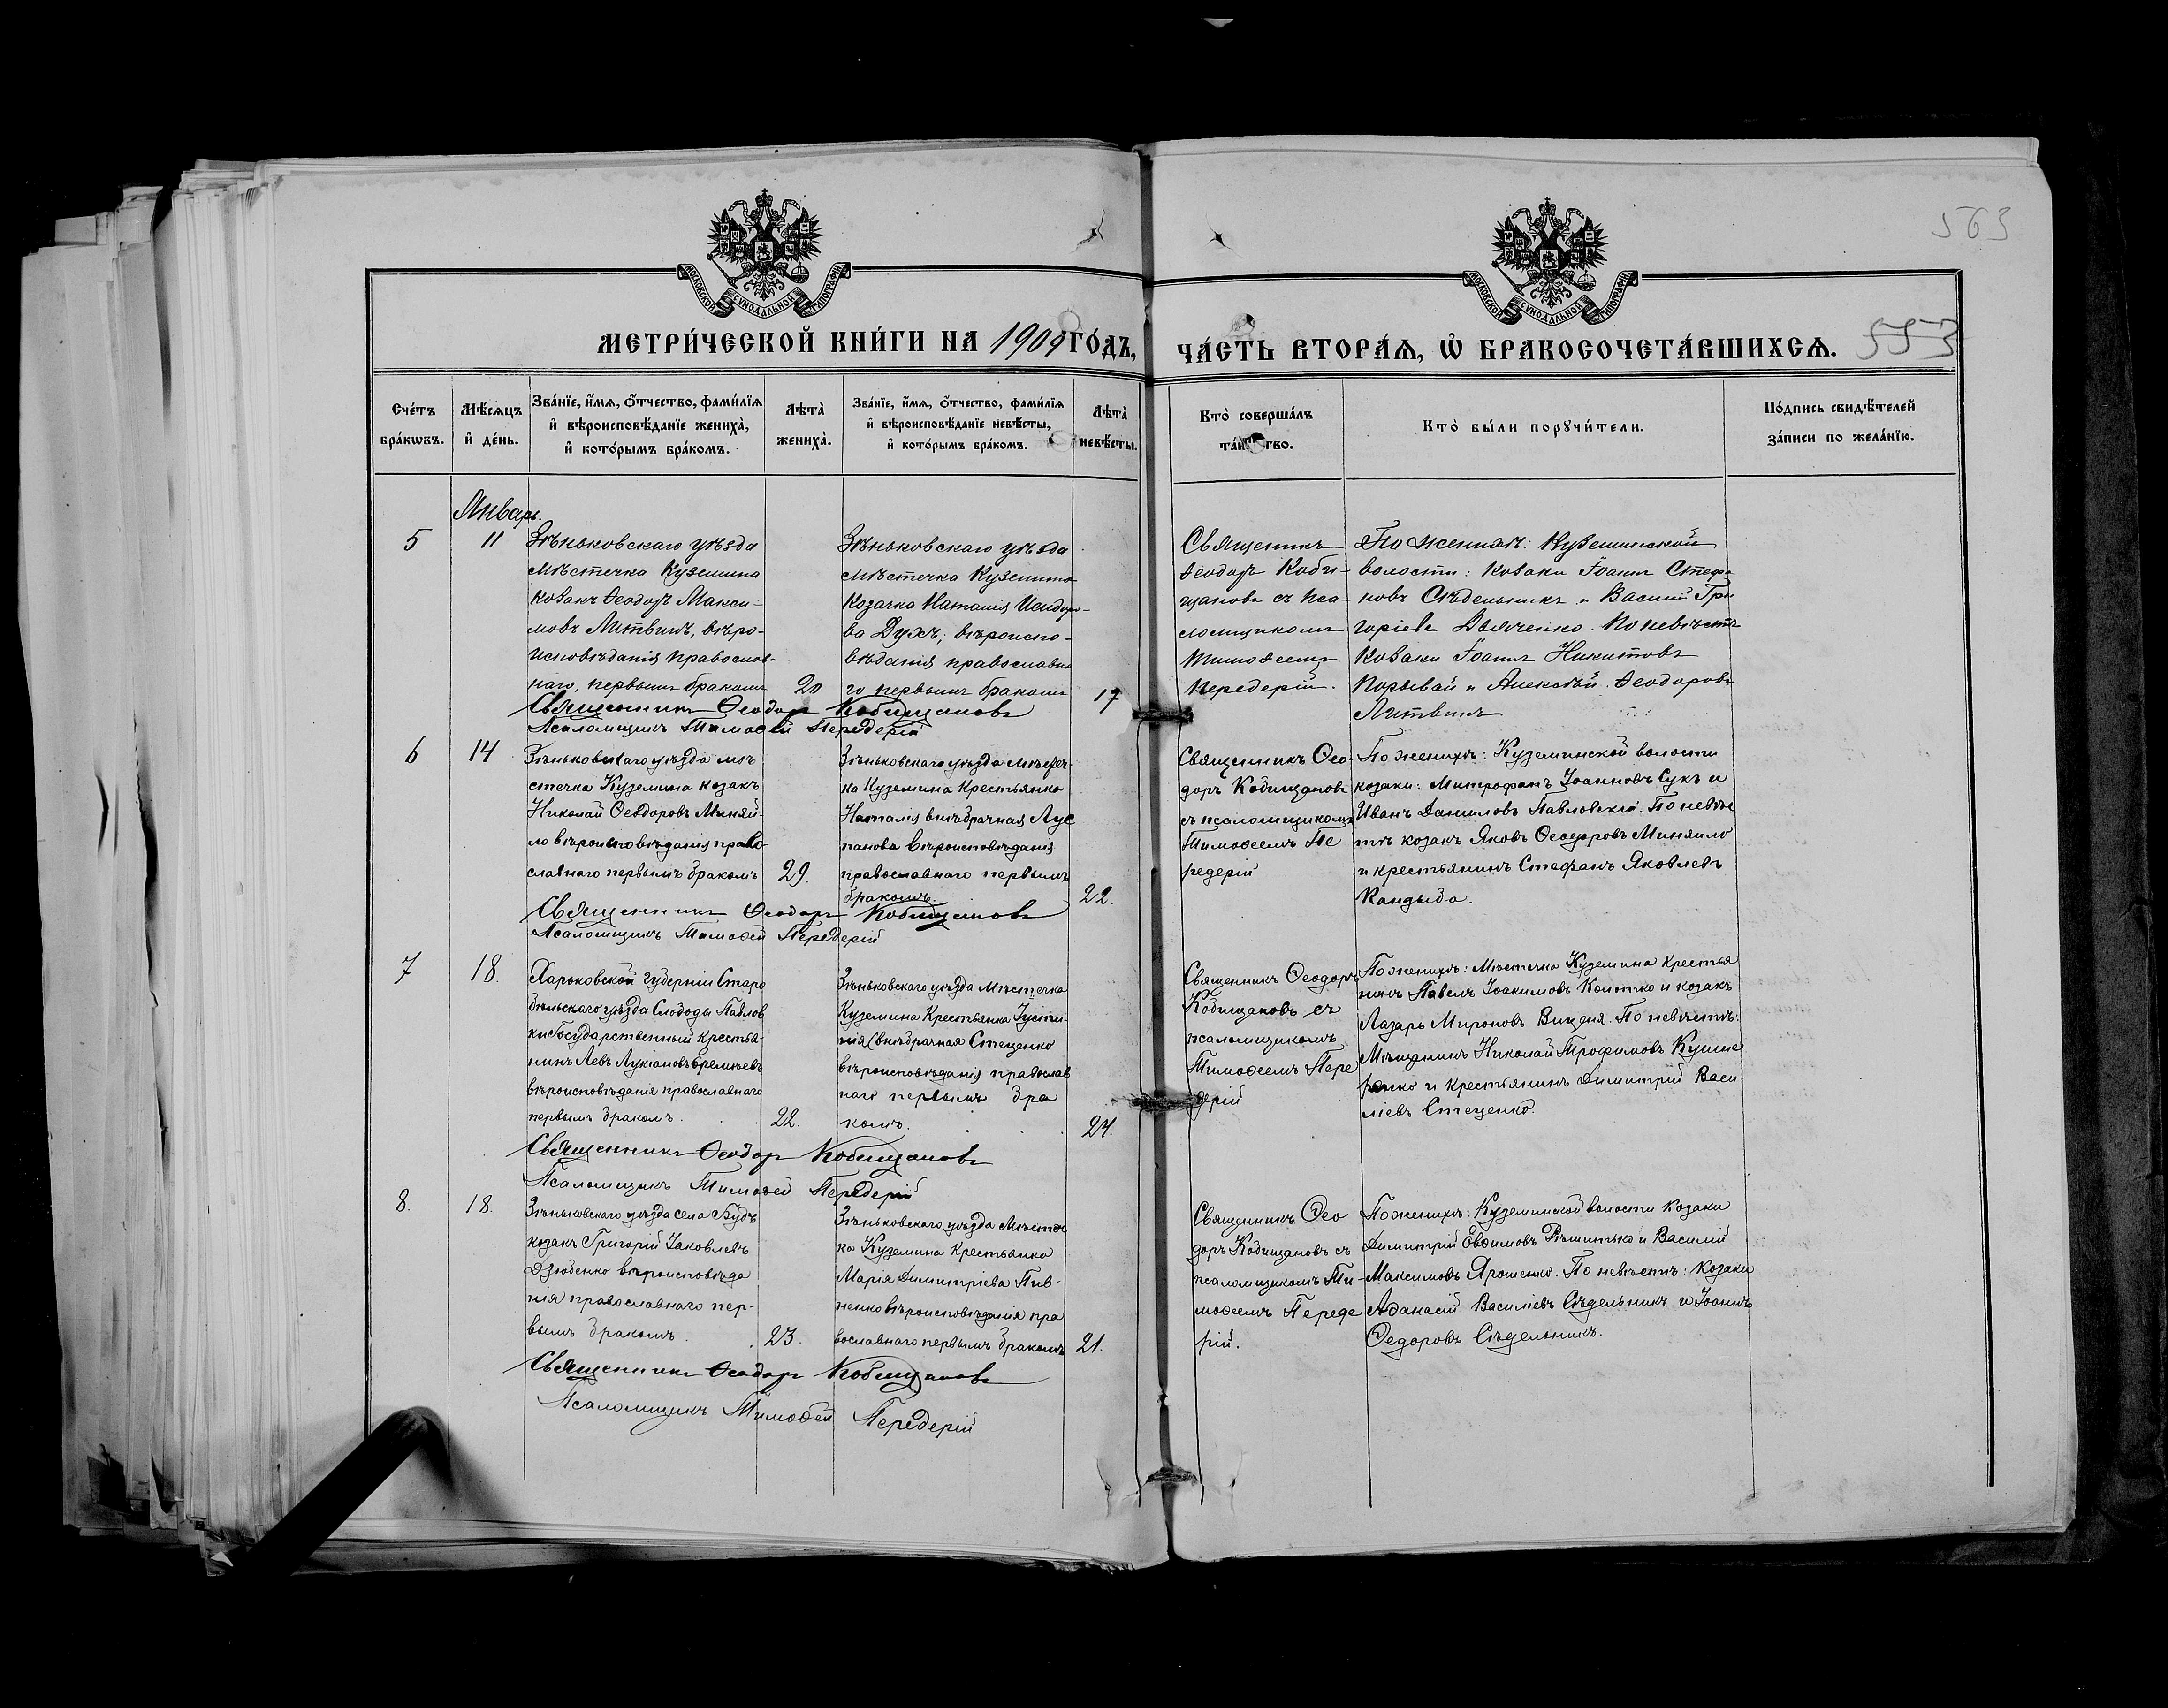 563
МОСКОВСКОЙ СѴНОДАЛЬНОЙ ТИПОГРАФІИ
МОСКОВСКОЙ СѴНОДАЛЬНОЙ ТИПОГРАФІИ
МЕТРИ́ЧЕСКОЙ КНИ́ГИ НА 1909 ГО́ДЪ, ЧА́СТЬ ВТОРА́Ѧ, Ѡ҆ БРАКОСОЧЕТА́ВШИХСѦ. 553
Сче́тъ бра́кѡвъ.
Мѣ́сѧцъ и҆ де́нь.
Зва́нїе, и҆́мѧ, ѻ҆́тчество, фами́лїѧ
и҆ вѣроисповѣ́данїе жениха̀,
и҆ кото́рымъ бра́комъ.
Лѣта̀ жениха̀.
Зва́нїе, и҆́мѧ, ѻ҆́тчество, фами́лїѧ
и҆ вѣроисповѣ́данїе невѣ́сты,
и҆ кото́рымъ бра́комъ.
Лѣта̀ невѣ́сты.
Кто̀ соверша́лъ
та́инство.
Кто̀ бы́ли порꙋчи́тели.
По́дпись свидѣ́телей
за́писи по жела́нїю.
Январь.
5
11
Зѣньковскаго уѣзда
мѣстечка Куземина
козакъ Ѳеодоръ Макси-
мовъ Литвинъ, вѣро-
исповѣданія православ-
наго, первымъ бракомъ
20
Зѣньковскаго уѣзда
мѣстечка Куземина
козачка Наталія Исидоро-
ва Духъ, вѣроиспо-
вѣданія православна
го первымъ бракомъ
17
Священникъ
Ѳеодоръ Коби-
щановъ съ пса-
ломщикомъ
Тимоѳеемъ
Передерій.
По женихѣ: Куземинской
волости: козаки Іоаннъ Стефа-
новъ Сѣдельникъ и Василій Гри
горіевъ Дьяченко. По невѣстѣ
козаки Іоаннъ Никитовъ
Порывай и Алексѣй Ѳеодоровъ
Литвинъ
Священникъ Ѳеодоръ Кобищановъ
Псаломщикъ Тимоѳей Передерій
6
14
Зѣньковскаго уѣзда мѣ
стечка Куземина козакъ
Николай Ѳеодоровъ Миняй-
ло вѣроисповѣданія право-
славнаго первымъ бракомъ
29.
Зѣньковскаго уѣзда мѣстеч-
ка Куземина Крестьянка
Наталія внѣбрачная Лус
панова вѣроисповѣданія
православнаго первымъ
бракомъ.
22.
Священникъ Ѳео-
доръ Кобищановъ
съ псаломщикомъ
Тимоѳеемъ Пе
редерій
По женихѣ: Куземинской волости
козаки: Митрофанъ Іоанновъ Сукъ и
Иванъ Даниловъ Павловскій. По невѣс
тѣ козакъ Яковъ Ѳеодоровъ Миняйло
и крестьянинъ Стефанъ Яковлевъ
Кандыба.
Священникъ Ѳеодоръ Кобищановъ
Псаломщикъ Тимоѳей Передерій
7
18.
Харьковской губерніи Старо
бѣльскаго уѣзда Слободы Павлов
ки Государственный крестья-
нинъ Левъ Лукіановъ Еремѣевъ
вѣроисповѣданія православнаго
первымъ бракомъ.
22.
Зѣньковскаго уѣзда Мѣстечка
Куземина Крестьянка Іусти-
нія (внѣбрачная Стеценко
вѣроисповѣданія православ
наго первымъ бра
комъ.
24.
Священникъ Ѳеодоръ
Кобищановъ съ
псаломщикомъ
Тимоѳеемъ Пере
дерій
По женихѣ: Мѣстечка Куземина крестья
нинъ Павелъ Іоакимовъ Колотко и козакъ
Лазарь Мироновъ Виценя. По невѣстѣ:
Мѣщанинъ Николай Трофимовъ Кушне
ренко и крестьянинъ Димитрій Васи-
ліевъ Стеценко.
Священникъ Ѳеодоръ Кобищановъ
Псаломщикъ Тимоѳей Передерій
8.
18.
Зѣньковскаго уѣзда села Будъ
козакъ Григорій Іаковлевъ
Дзюбенко вѣроисповѣда
нія православнаго пер-
вымъ бракомъ.
23.
Зѣньковскаго уѣзда Мѣстеч
ка Куземина Крестьянка
Марія Димитріева Пив-
ненко вѣроисповѣданія пра
вославнаго первымъ бракомъ
21.
Священникъ Ѳео
доръ Кобищановъ съ
псаломщикомъ Ти-
моѳеемъ Переде
рій.
По женихѣ: Куземинской волости козаки
Димитрій Евѳимовъ Рѣшитько и Василій
Максимовъ Ярошенко. По невѣстѣ: козаки
Аѳанасій Василіевъ Сѣдельникъ и Іоаннъ
Ѳедоровъ Сѣдельникъ.
Священникъ Ѳеодоръ Кобищановъ
Псаломщикъ Тимоѳей Передерій